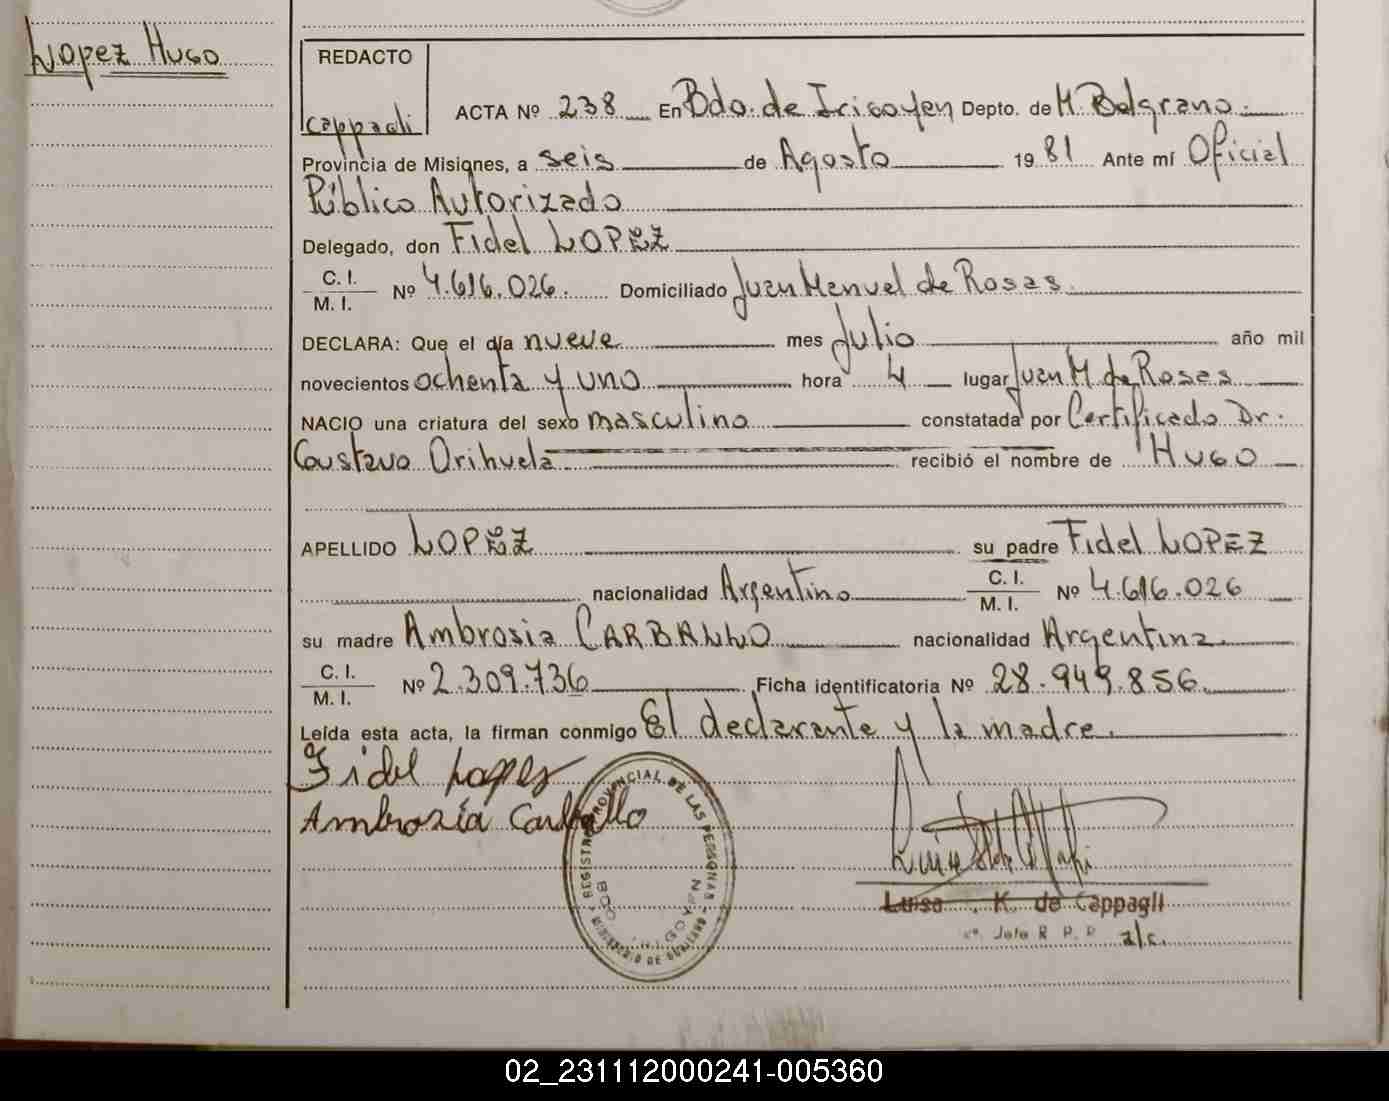 Lopez Hugo
REDACTO
Cappagli
ACTA Nº 238 En Bdo. de Irigoyen Depto. de M. Belgrano.
Provincia de Misiones, a seis de Agosto 19 81 Ante mí Oficial
Público Autorizado
Delegado, don Fidel LOPEZ
C. I.
M. I. Nº 4.616.026. Domiciliado Juan Manuel de Rosas
DECLARA: Que el día nueve mes Julio año mil
novecientos ochenta y uno hora 4 lugar Juan M. de Rosas
NACIO una criatura del sexo masculino constatada por Certificado Dr.
Gustavo Orihuela recibió el nombre de Hugo
APELLIDO LOPEZ su padre Fidel LOPEZ
nacionalidad Argentino C. I.
M. I. Nº 4.616.026
su madre Ambrosia CARBALLO nacionalidad Argentina
C. I.
M. I. Nº 2.309.736 Ficha identificatoria Nº 28.949.856
Leída esta acta, la firman conmigo El declarante y la madre.
Fidel Lopez
Ambrosia Carballo
REGISTRO PROVINCIAL DE LAS PERSONAS
MINISTERIO DE GOBIERNO
BDO IRIGOYEN
Luisa K. de Cappagli
Jefe R. P. P. a/c.
02_231112000241-005360